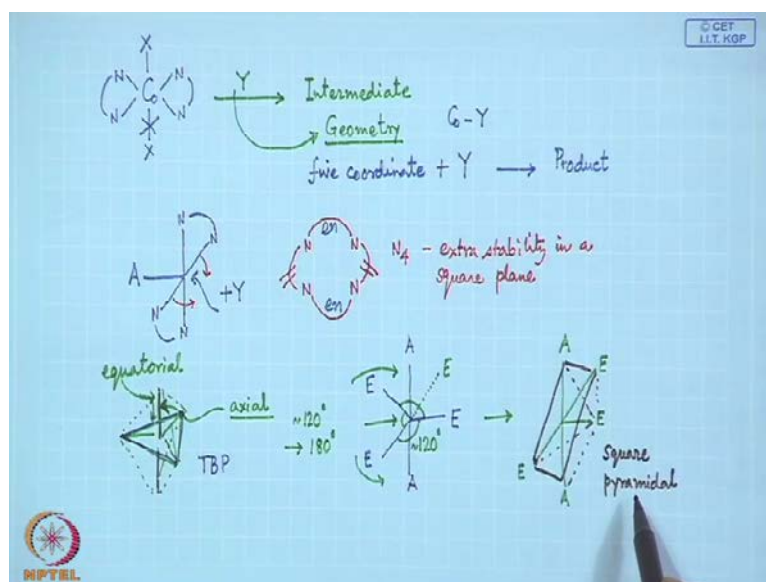 © CET
I.I.T. KGP
X
N N
Co
N N
X
Y
Intermediate
Geometry
Co-Y
five coordinate + Y → Product
N
N
A
+Y
N
N
en
N N
N N
en
N4 - extra stability in a
square plane
equatorial
axial
TBP
~120°
→ 180°
A
E E
E
E
A
~120°
A
E
E
E
A
Square
pyramidal
NPTEL